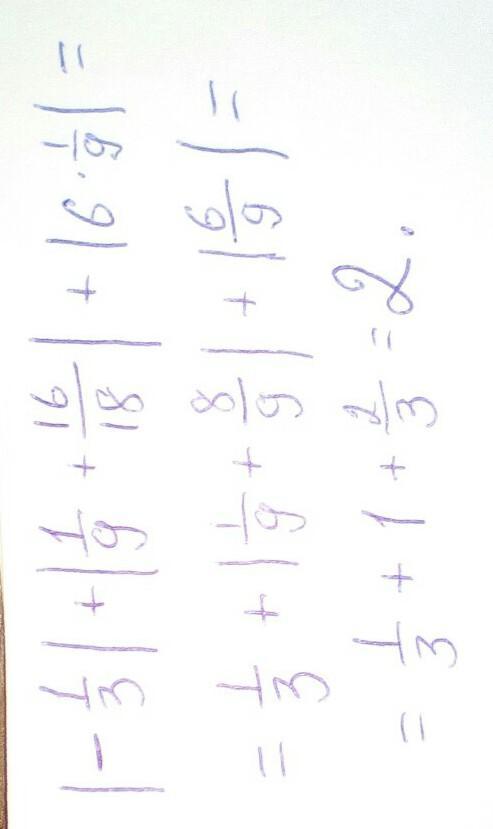 |-1/3| + |1/9 + 16/18| + |6 · 1/9| =
= 1/3 + |1/9 + 8/9| + |6/9| =
= 1/3 + 1 + 2/3 = 2.